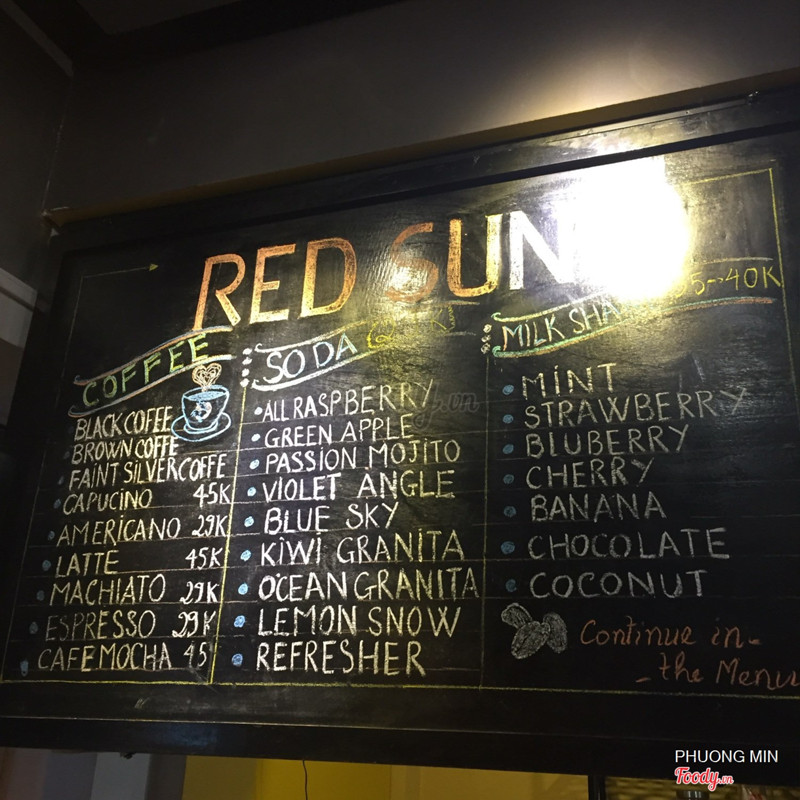 RED SUN
COFFEE
BLACK COFEE
BROWN COFFE
FAINT SILVERCOFFE
CAPUCINO 45K
AMERICANO 29K
LATTE 45K
MACHIATO 29K
ESPRESSO 29K
CAFEMOCHA 45
SODA
ALL RASPBERRY
GREEN APPLE
PASSION MOJITO
VIOLET ANGLE
BLUE SKY
KIWI GRANITA
OCEAN GRANITA
LEMON SNOW
REFRESHER
MILK 40K
MINT
STRAWBERRY
BLUBERRY
CHERRY
BANANA
CHOCOLATE
COCONUT
Continue in
the Menu
PHUONG MIN
Foody.vn